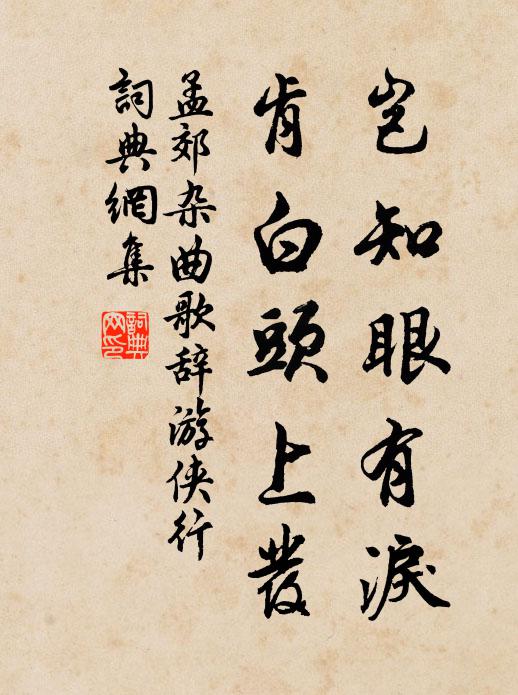 岂知眼有淚
肯白頭上發
孟郊杂曲歌辞游侠行
詞典網集
詞典网印